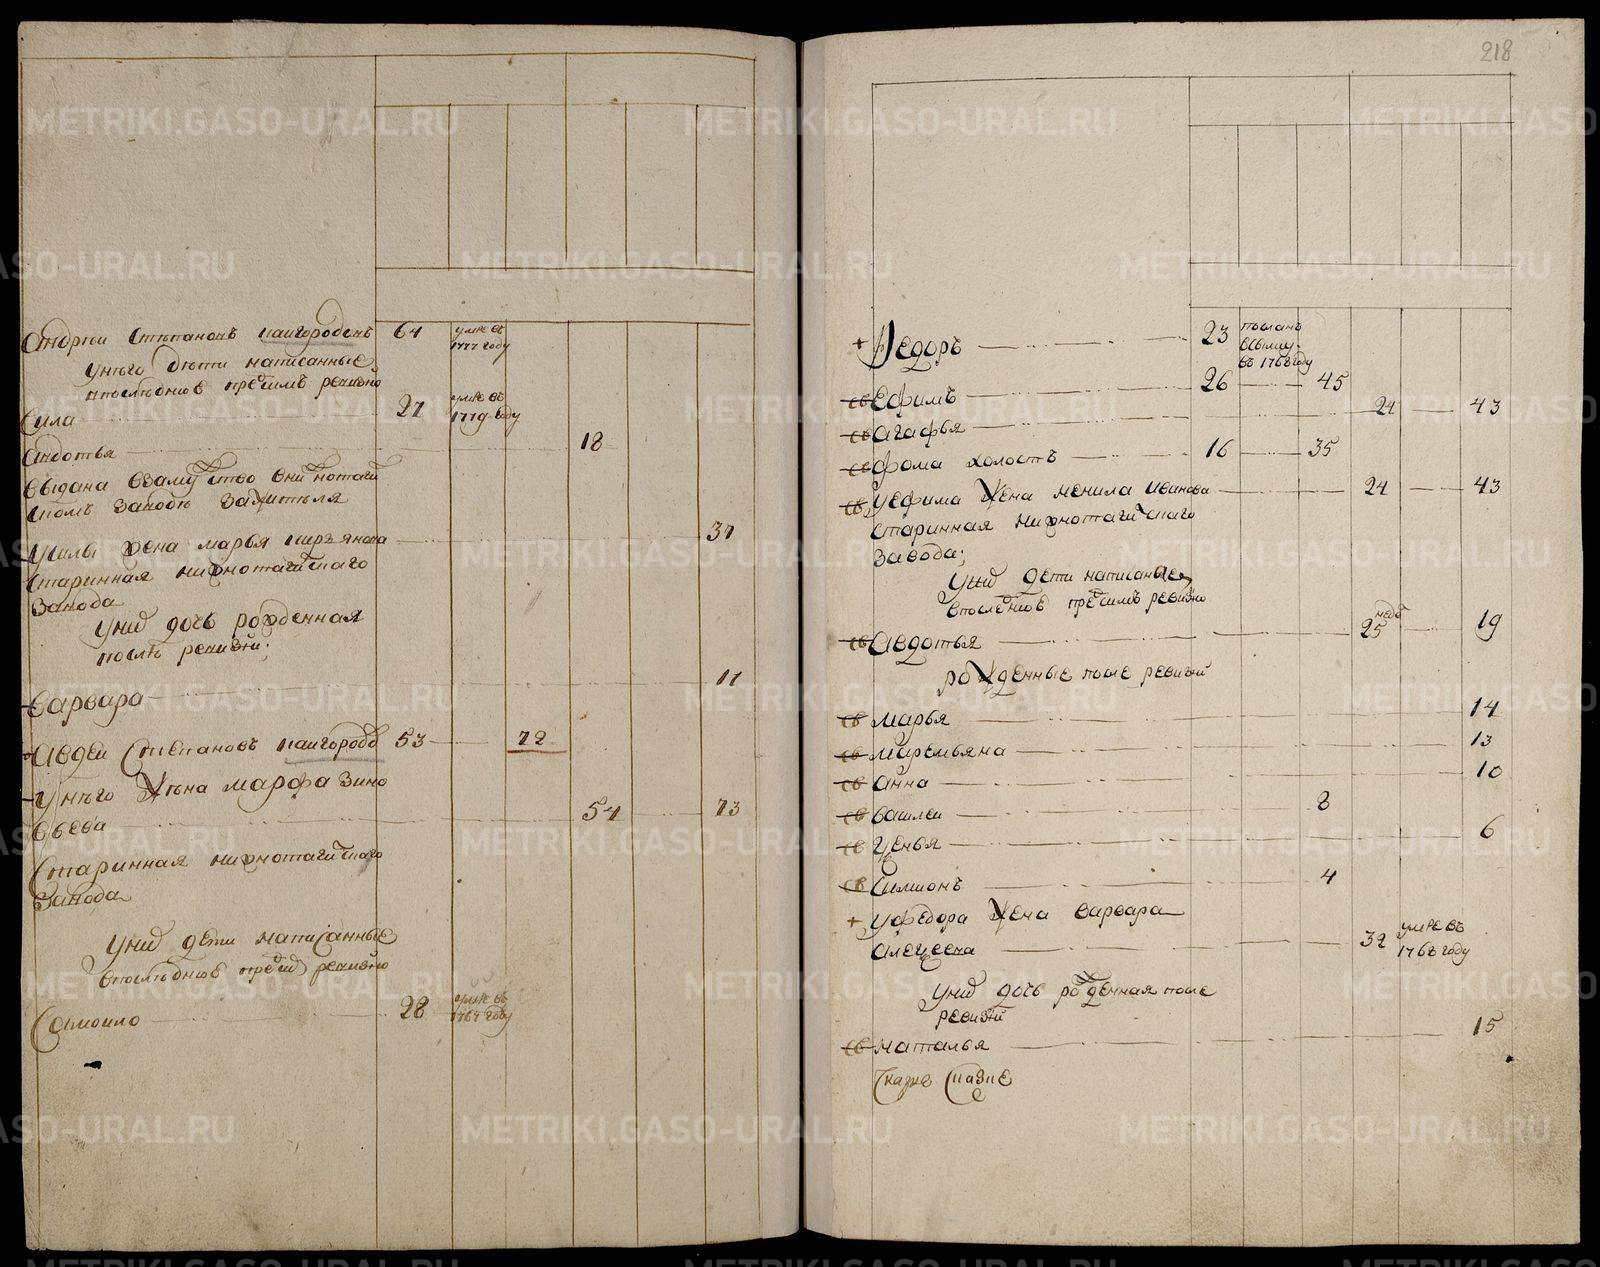 Андрей Степановъ паигороденъ 61 умре въ 1777 году
унего дети написанные
впоследнюю предъ симъ ревизию
Сила 27 умре въ 1779 году
Авдотья 18
выдана взамужство вниж нотагил
скомъ заводе зажителя
усилы жена марья
31
старинная нижнотагильскаго
завода
унихъ дочь рожденная
после ревизии;
варвара 11
Авдей Степановъ паигородо 53 72
унего жена марфа зино
вьева 54 73
Старинная нижнотагильскаго
завода
унихъ дети написанные
впоследнюю предъ симъ ревизию
Самоило 28 умре въ 1767 году
218
+ Федоръ 23 въ 1768 году
св Ефимъ 26 45
св Агафья 24 43
св фома холостъ 16 35
св уефима жена ненила иванова 24 43
старинная нижнотагильскаго
завода;
унихъ дети написаные
впоследнюю предъ симъ ревизию
св Авдотья 25 неде 19
рожденные после ревизии
св марья 14
св маремьяна 13
св анна 10
св василеи 8
св 6
св Симионъ 4
+ уфедора жена варвара
алексеева 32 умре въ 1768 году
унихъ дочь рожденная после
ревизии
св наталья 15